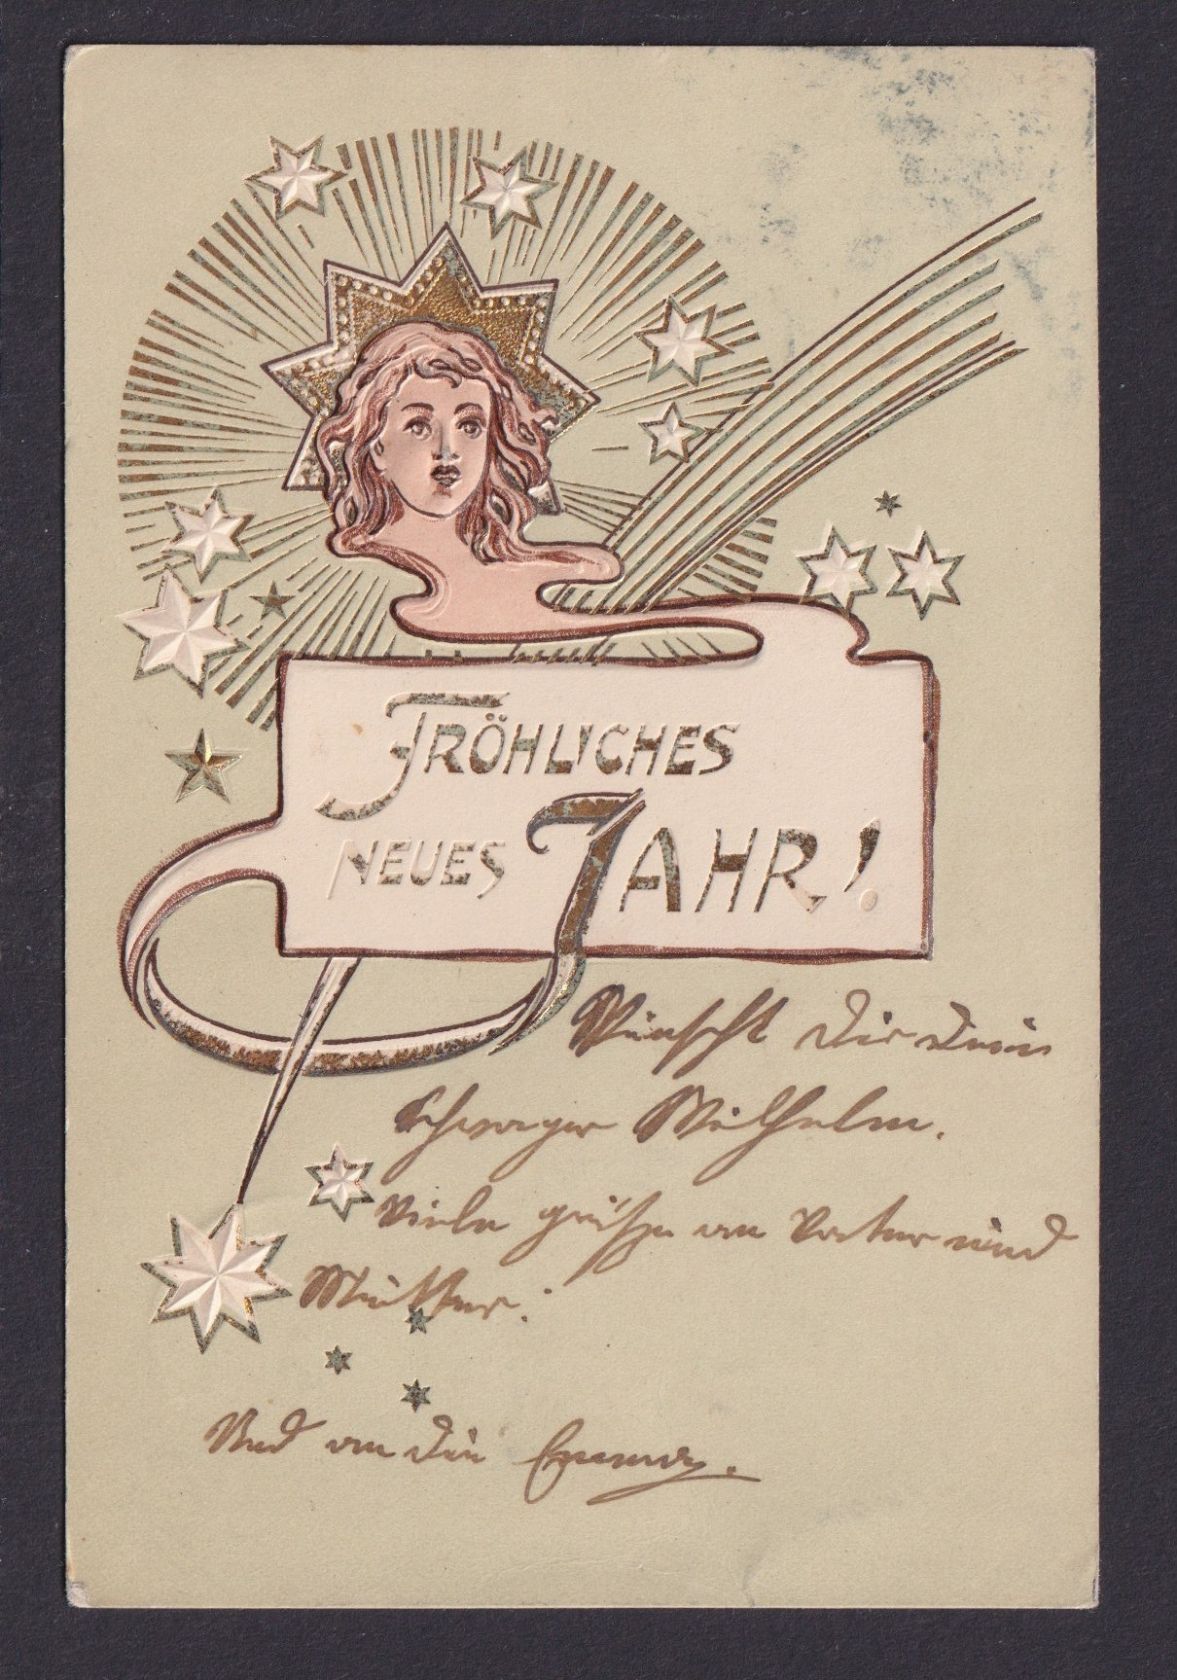 FRÖHLICHES
NEUES JAHR!
Wünscht Dir Dein
Schwager Wilhelm.
Viele grüße an Vater und
Mutter.
Und an die Emma.